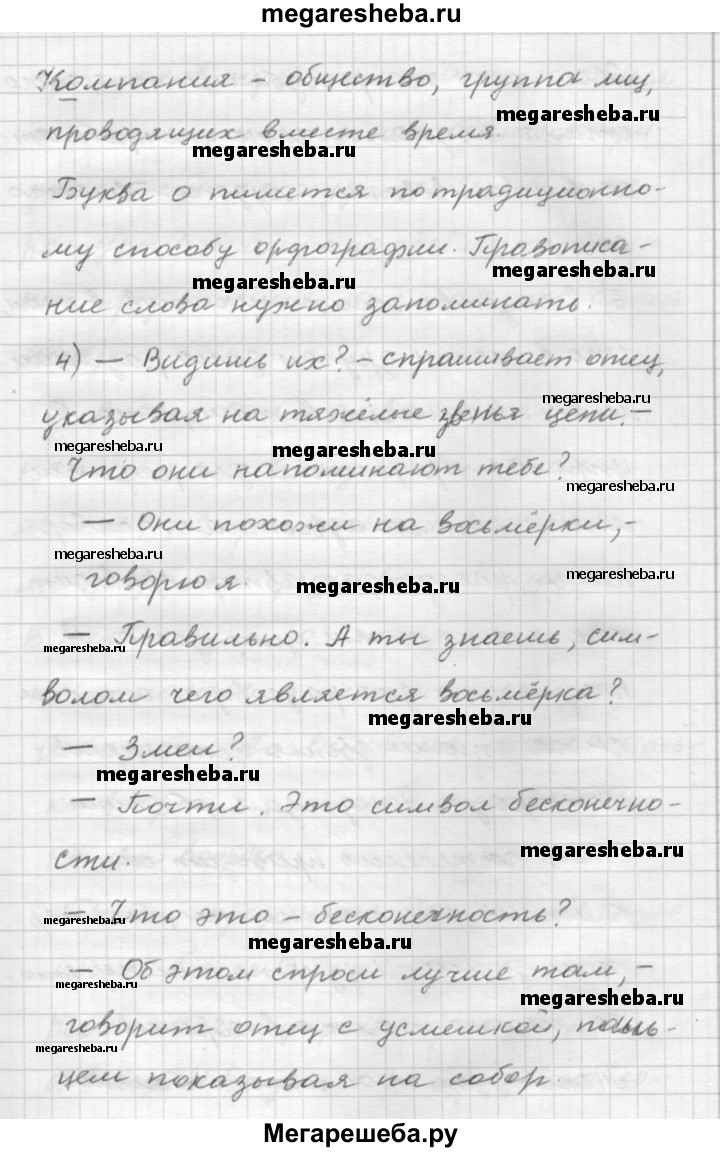 megaresheba.ru
Компания – общество, группа лиц,
megaresheba.ru
проводящих вместе время.
megaresheba.ru
Буква о пишется по традиционно-
му способу орфографии. Правописа-
megaresheba.ru
megaresheba.ru
ние слова нужно запоминать.
4) — Видишь их? – спрашивает отец,
megaresheba.ru
указывая на тяжёлые звенья цепи. –
megaresheba.ru
megaresheba.ru
Что они напоминают тебе?
megaresheba.ru
— Они похожи на восьмёрки, –
megaresheba.ru
megaresheba.ru
говорю я.
megaresheba.ru
— Правильно. А ты знаешь, сим-
megaresheba.ru
волом чего является восьмёрка?
megaresheba.ru
— Змеи?
megaresheba.ru
— Почти. Это символ бесконечно-
megaresheba.ru
сти.
megaresheba.ru
— Что это – бесконечность?
megaresheba.ru
— Об этом спроси лучше там, –
megaresheba.ru
megaresheba.ru
говорит отец с усмешкой, паль-
megaresheba.ru
цем показывая на собор.
Мегарешеба.ру